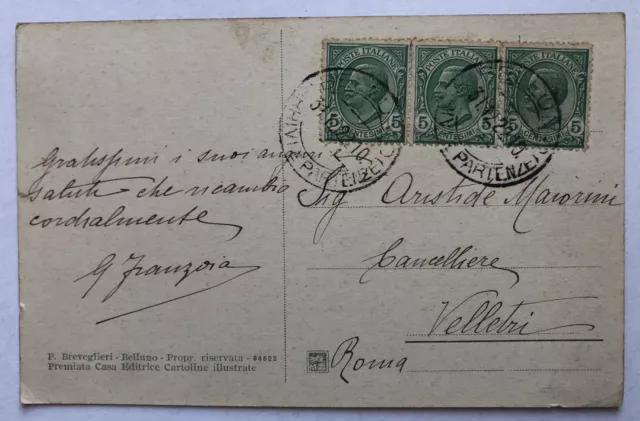 POSTE ITALIANE POSTE ITALIANE
5 CENTESIMI 5 5 CENTESIMI 5 CENTESIMI 5
PARTENZE PARTENZE
Gratissimi i suoi auguri
saluti che ricambio
cordialmente
G Franzoia
Sig Aristide Maiorini
Cancelliere
Velletri
Roma
F. Breveglieri - Belluno - Propr. riservata - 94622
Premiata Casa Editrice Cartoline illustrate